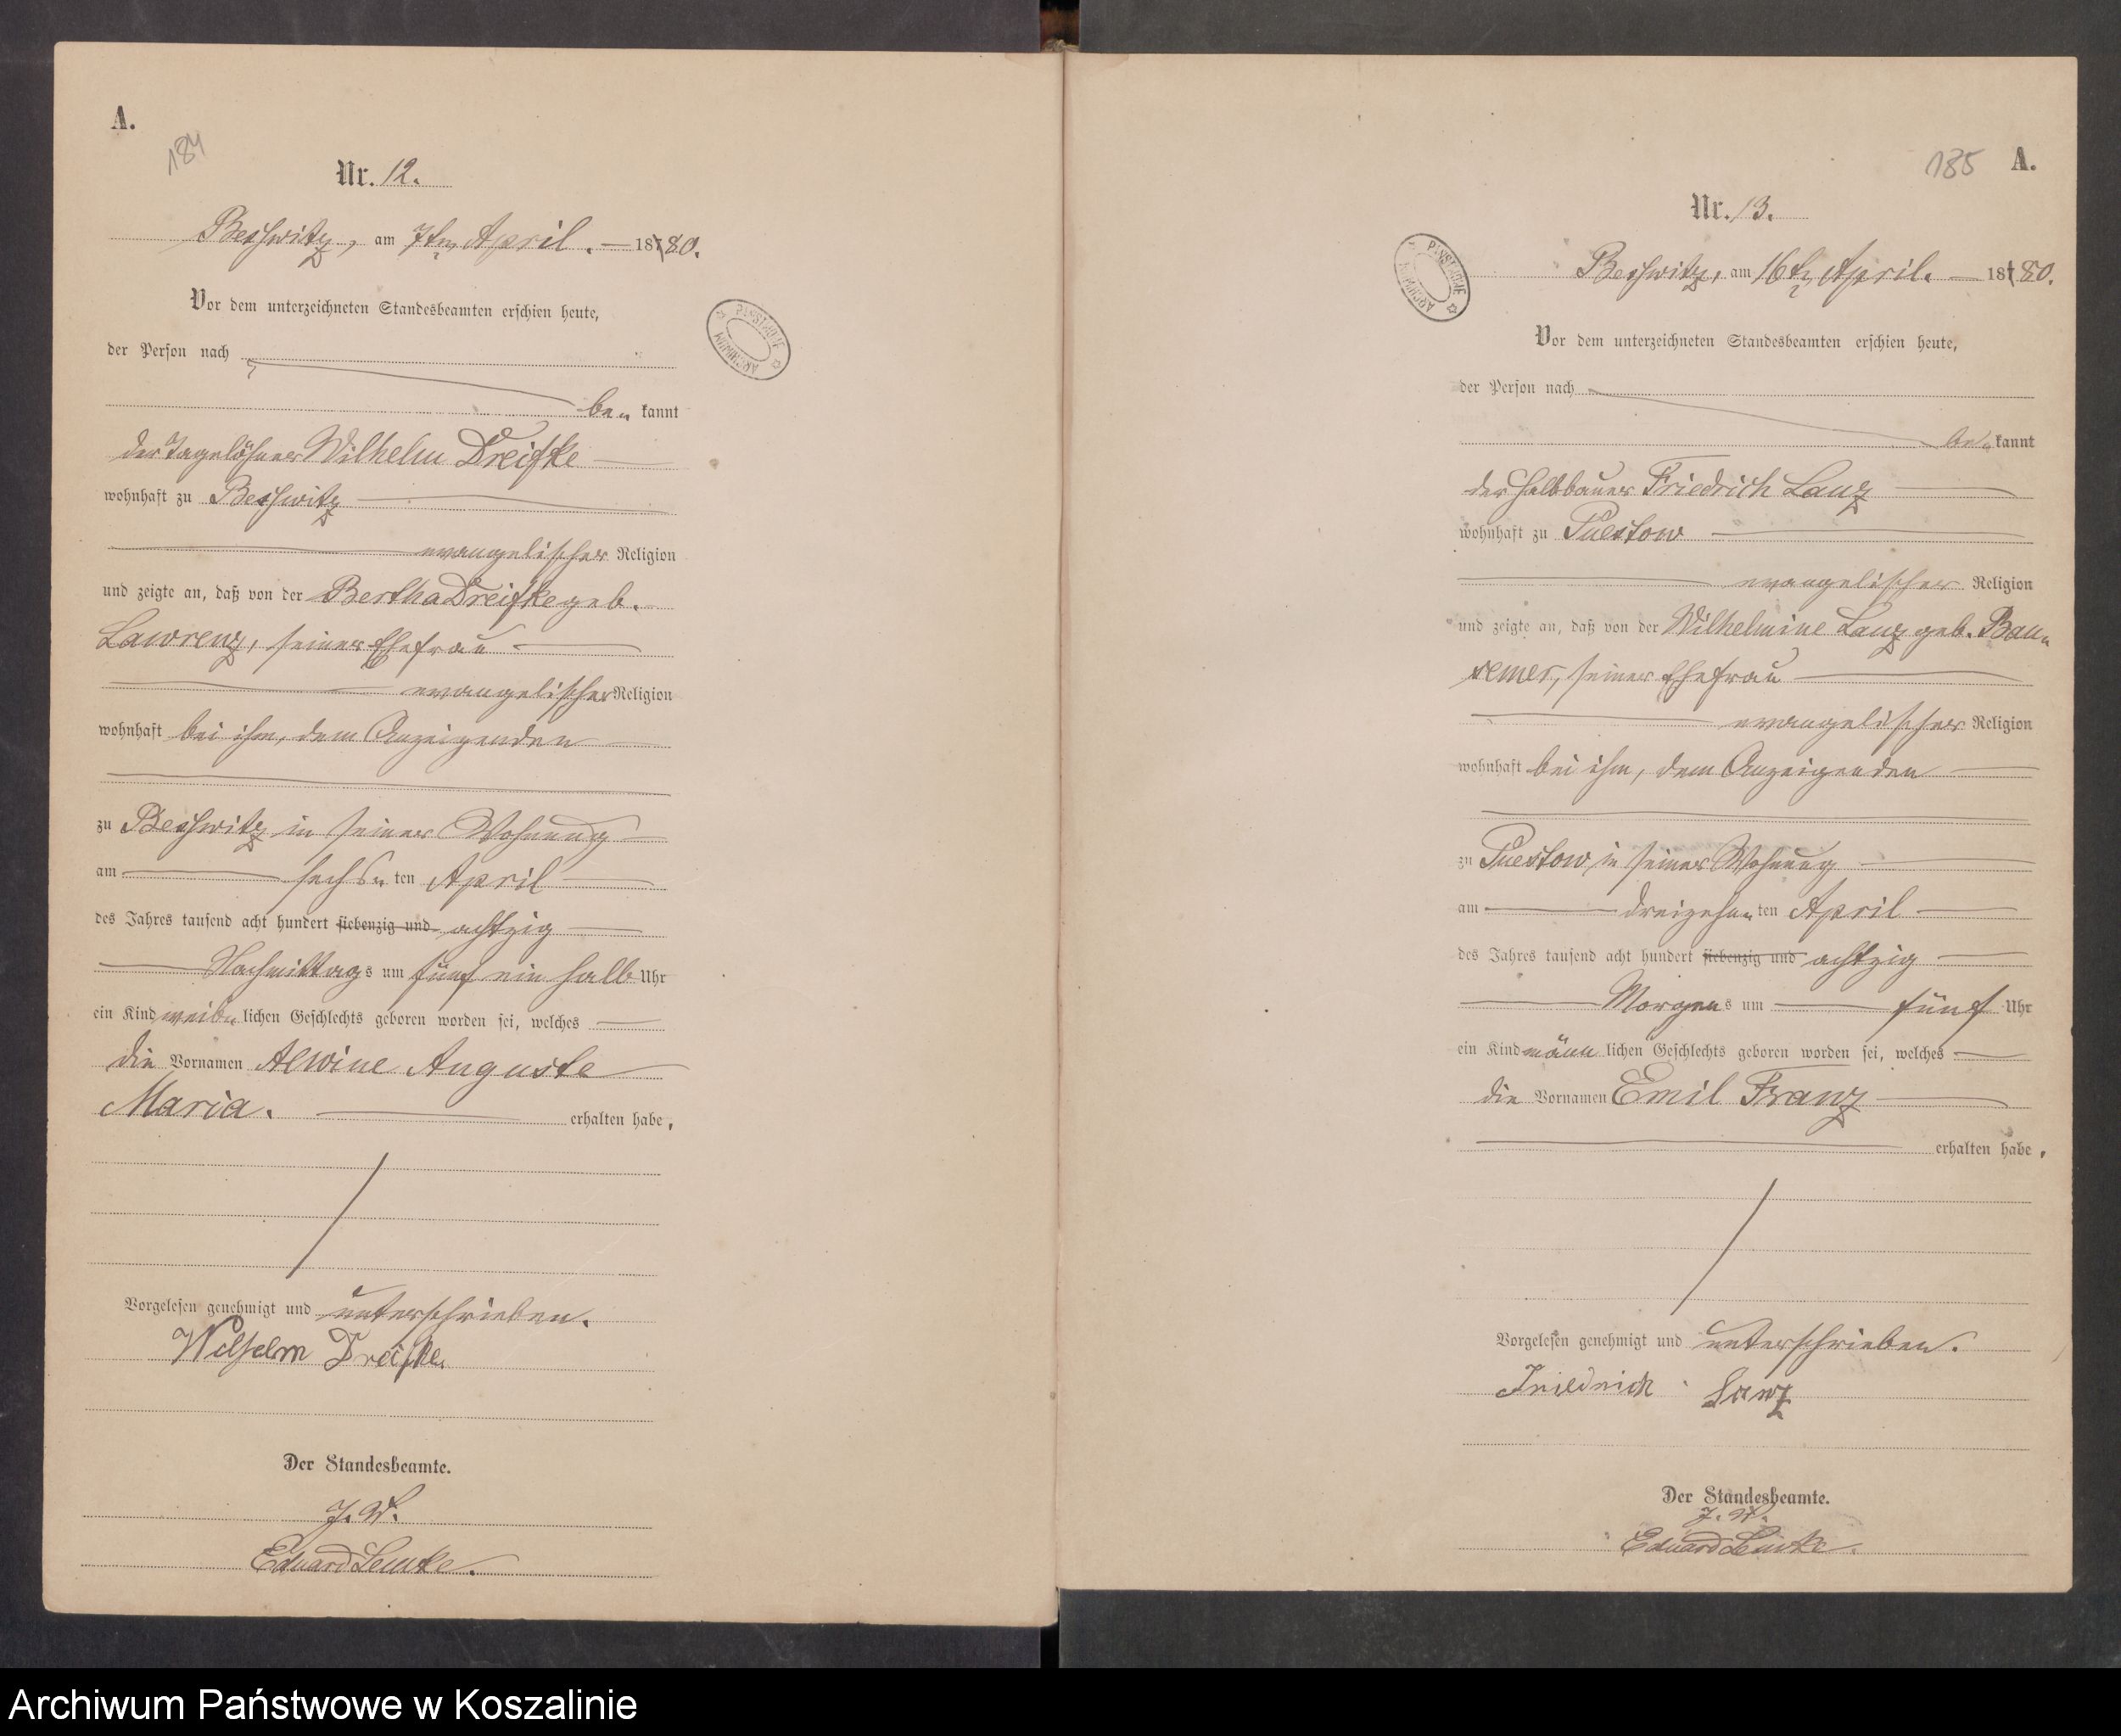 A.
184
Nr. 12.
Beßwitz, am 7ten April. 1880.
Vor dem unterzeichneten Standesbeamten erschien heute,
der Person nach
be= kannt
der Tagelöhner Wilhelm Dreifke
wohnhaft zu Beßwitz
evangelischer Religion
und zeigte an, daß von der Bertha Dreifke geb.
Lawrenz, seiner Ehefrau
evangelischer Religion
wohnhaft bei ihm, dem Anzeigenden
zu Beßwitz in seiner Wohnung
am sechs= ten April
des Jahres tausend acht hundert siebenzig und achtzig
Nachmittags um fünf ein halb Uhr
ein Kind weib= lichen Geschlechts geboren worden sei, welches
die Vornamen Alwine Auguste
Maria. erhalten habe.
Vorgelesen genehmigt und unterschrieben.
Wilhelm Dreifke.
Der Standesbeamte.
J. V.
Eduard Lemke.
PAŃSTWOWE ARCHIWUM
185
A.
Nr. 13.
Beßwitz, am 16ten April. 1880.
Vor dem unterzeichneten Standesbeamten erschien heute,
der Person nach
be= kannt
der Halbbauer Friedrich Lanz
wohnhaft zu Puestow
evangelischer Religion
und zeigte an, daß von der Wilhelmine Lanz geb. Bau=
remer, seiner Ehefrau
evangelischer Religion
wohnhaft bei ihm, dem Anzeigenden
zu Puestow in seiner Wohnung
am dreizehn= ten April
des Jahres tausend acht hundert siebenzig und achtzig
Morgens um fünf Uhr
ein Kind männ lichen Geschlechts geboren worden sei, welches
die Vornamen Emil Franz
erhalten habe.
Vorgelesen genehmigt und unterschrieben.
Friedrich Lanz
Der Standesbeamte.
J. V.
Eduard Lemke.
PAŃSTWOWE ARCHIWUM
Archiwum Państwowe w Koszalinie